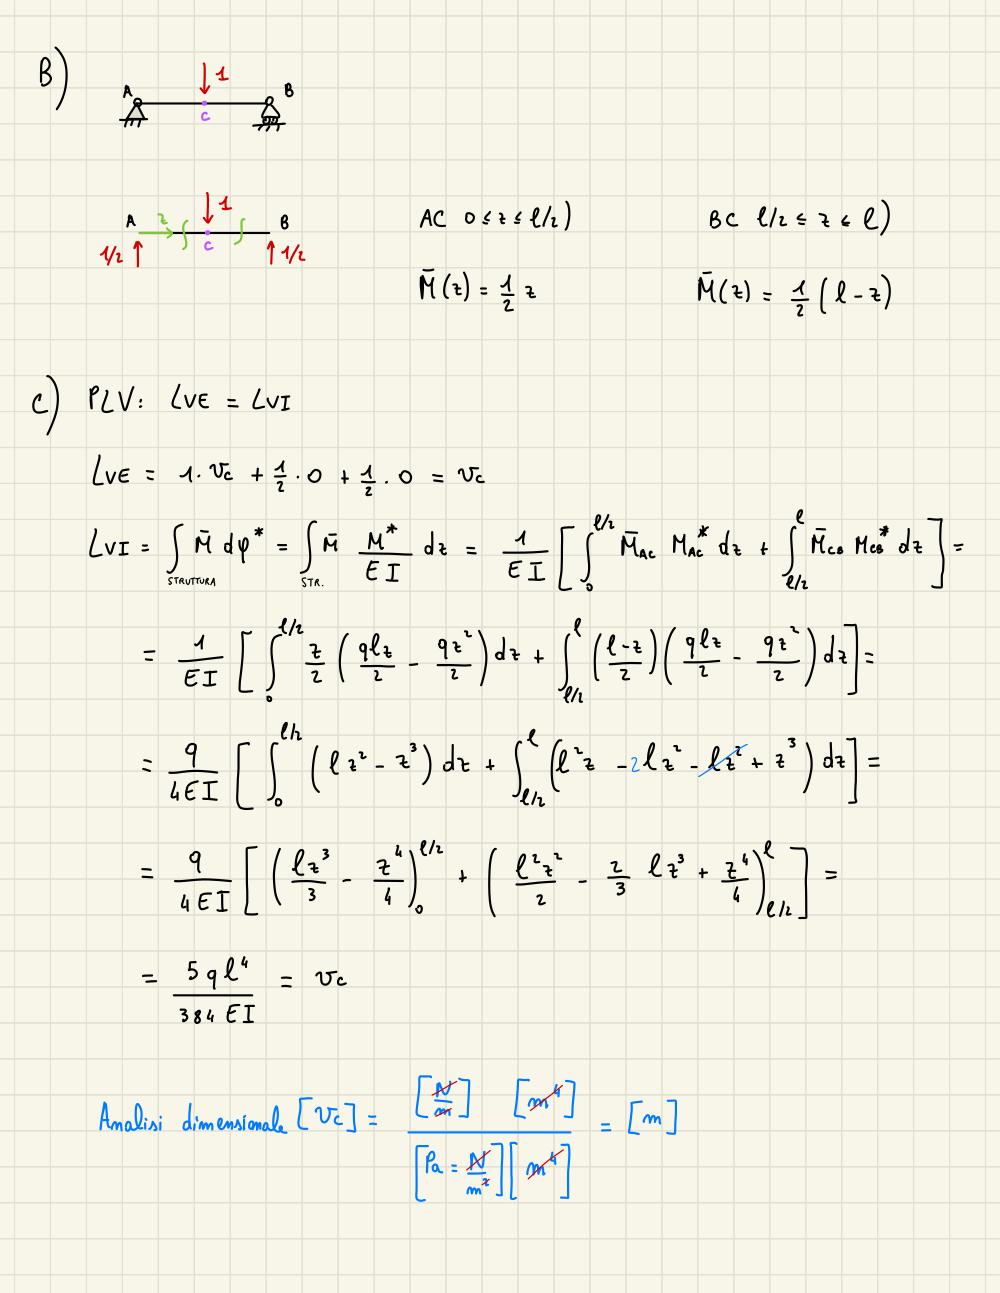 B)
1
A B
C
A z 1 B
C
1/2 1/2
AC 0 ≤ z ≤ l/2) BC l/2 ≤ z ≤ l)
M̄(z) = 1/2 z M̄(z) = 1/2 (l - z)
C) PLV: LVE = LVI
LVE = 1 · vc + 1/2 · 0 + 1/2 · 0 = vc
LVI = ∫STRUTTURA M̄ dφ* = ∫STR. M̄ M*/EI dz = 1/EI [ ∫0^l/2 M̄AC MAC* dz + ∫l/2^l M̄CB MCB* dz ] =
= 1/EI [ ∫0^l/2 z/2 (qlz/2 - qz²/2) dz + ∫l/2^l (l-z/2) (qlz/2 - qz²/2) dz ] =
= q/4EI [ ∫0^l/2 (l z² - z³) dz + ∫l/2^l (l²z - 2lz² - lz² + z³) dz ] =
= q/4EI [ (lz³/3 - z⁴/4)0^l/2 + (l²z²/2 - 2/3 lz³ + z⁴/4)l/2^l ] =
= 5ql⁴/384 EI = vc
Analisi dimensionale [vc] = [N/m] [m⁴] / [Pa = N/m²] [m⁴] = [m]